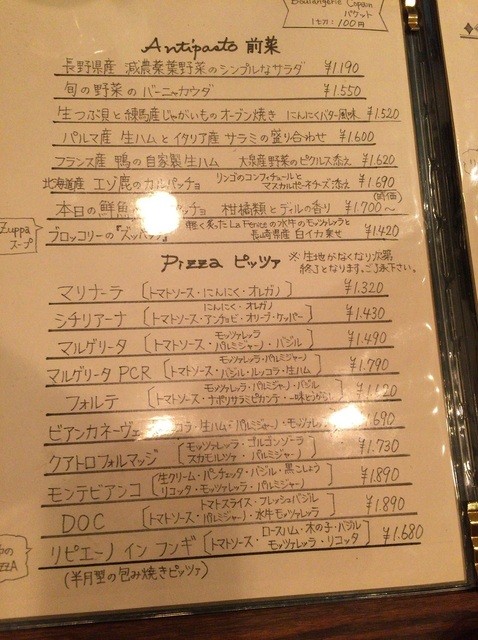 Boulangerie
バケット
1セカ : 100円
Antipasto 前菜
長野県産 減農薬葉野菜のシンプルなサラダ ¥1190
旬の野菜のバーニャカウダ ¥1.550
生つぶ貝と練馬産じゃがいものオーブン焼き にんにくバター風味 ¥1.520
パルマ産 生ハムとイタリア産 サラミの盛り合わせ ¥1.600
フランス産 鴨の自家製生ハム 大泉産野菜のピクルス添え ¥1.620
北海道産 エゾ鹿のカルパッチョ リンゴのコンフィチュールとマスカルポーネチーズ添え ¥1.690
本日の鮮魚 ッチョ 柑橘類とディルの香り (時価) ¥1.700〜
Zuppa
スープ
ブロッコリーの "ズッパ" 軽く炙ったLa Feniceの水牛のモッツァレラと長崎県産 白イカ乗せ ¥1.420
Pizza ピッツァ
※生地がなくなり次第
終了となります。ご了承下さい。
マリナーラ (トマトソース・にんにく・オレガノ) ¥1.320
シチリアーナ (にんにく・オレガノ トマトソース・アンチョビ・オリーブ・ケッパー) ¥1.430
マルゲリータ (モッツァレラ トマトソース・パルミジャーノ・バジル) ¥1.490
マルゲリータ PCR (モッツァレラ・パルミジャーノ トマトソース・バジル・ルッコラ・生ハム) ¥1.790
フォルテ (モッツァレラ・パルミジャーノ・バジル トマトソース・ナポリサラミピカンテ・一味とうがらし)
ビアンカネーヴェ コラ・生ハム・パルミジャーノ・モッツァレ 690
クアトロフォルマッジ (モッツァレラ・ゴルゴンゾーラ スカモルツァ・パルミジャーノ) ¥1.730
モンテビアンコ (生クリーム・パンチェッタ・バジル・黒こしょう リコッタ・モッツァレラ・パルミジャーノ) ¥1.890
DOC (トマトスライス・フレッシュバジル トマトソース・パルミジャーノ・水牛モッツァレラ) ¥1.890
リピエーノ イン フンギ (ロースハム・木の子・バジル トマトソース・モッツァレラ・リコッタ) ¥1.680
(半月型の包み焼きピッツァ)